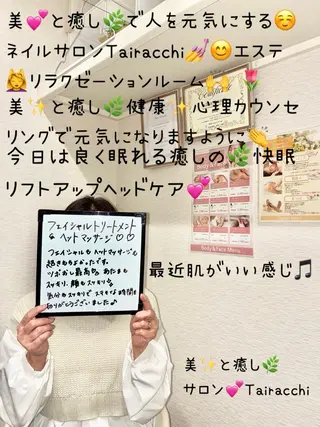 美💕と癒し🌿で人を元気にする☺️
ネイルサロンTairacchi💅😊エステ
💆リラクゼーションルーム✨🌷
美✨と癒し🌿健康✨心理カウンセ
リングで元気になりますように👏
今日は良く眠れる癒しの🌿快眠
リフトアップヘッドケア💕
フェイシャルトリートメント
& ヘッドマッサージ♡♡
フェイシャルもヘッドマッサージも
超きもちよかったです。
ツボおし最高💪 あたまも
スッキリ、顔もスッキリ♪
気分もスッキリで ステキな時間を
ありがとうございました♪
Body&Face Menu
最近肌がいい感じ🎵
美✨と癒し🌿
サロン💕Tairacchi